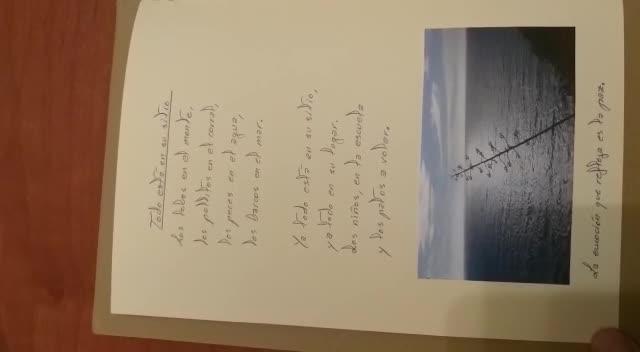 Todo está en su sitio
Los lobos en el monte,
los pollitos en el corral,
los peces en el agua,
los barcos en el mar.
Ya todo está en su sitio,
ya todo en su lugar.
Los niños, en la escuela
y los patos a volar.
La emoción que refleja es la paz.